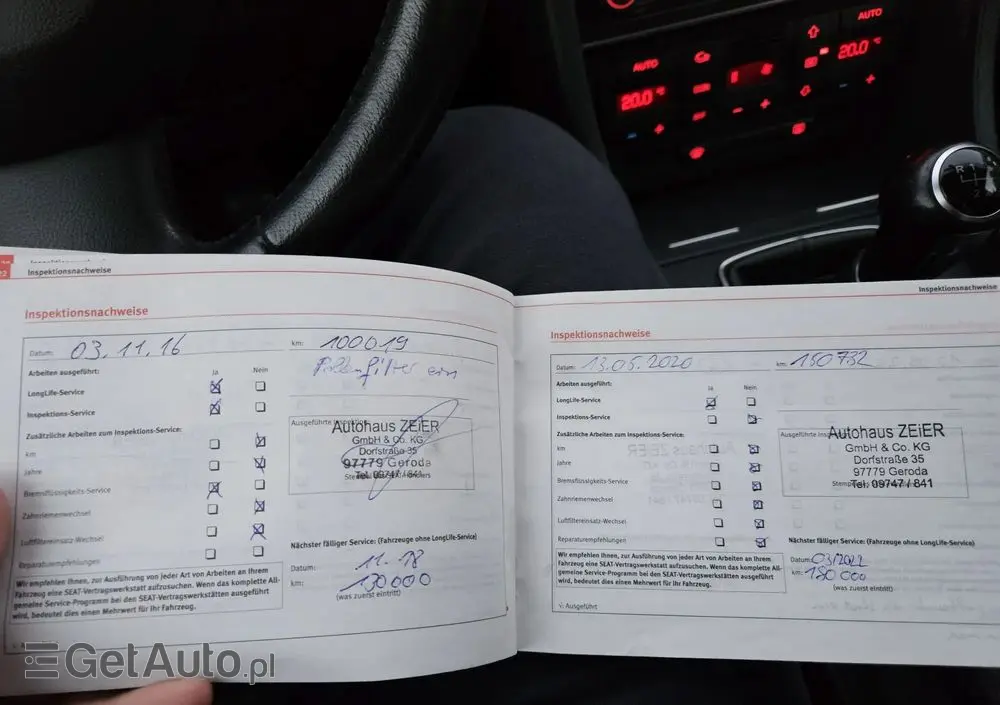 AUTO
20.0 °C
AUTO
20.0 °C
R 1
2
22
Inspektionsnachweise
Inspektionsnachweise
Datum: 03.11.16 km: 100019
Arbeiten ausgeführt: Ja Nein
LongLife-Service
Inspektions-Service
Zusätzliche Arbeiten zum Inspektions-Service:
km
Jahre
Bremsflüssigkeits-Service
Zahnriemenwechsel
Luftfiltereinsatz-Wechsel
Reparaturempfehlungen
Pollenfilter ein
Ausgeführte
Autohaus ZEiER
GmbH & Co. KG
Dorfstraße 35
97779 Geroda
Tel. 09747 / 841
Nächster fälliger Service: (Fahrzeuge ohne LongLife-Service)
Datum: 11.18
km: 130000
(was zuerst eintritt)
Wir empfehlen Ihnen, zur Ausführung von jeder Art von Arbeiten an Ihrem
Fahrzeug eine SEAT-Vertragswerkstatt aufzusuchen. Wenn das komplette All-
gemeine Service-Programm bei den SEAT-Vertragswerkstätten ausgeführt
wird, bedeutet dies einen Mehrwert für Ihr Fahrzeug.
Inspektionsnachweise
Inspektionsnachweise
Datum: 13.05.2020 km: 150732
Arbeiten ausgeführt:
Ja Nein
LongLife-Service
Inspektions-Service
Zusätzliche Arbeiten zum Inspektions-Service:
km
Jahre
Bremsflüssigkeits-Service
Zahnriemenwechsel
Luftfiltereinsatz-Wechsel
Reparaturempfehlungen
Autohaus ZEiER
GmbH & Co. KG
Dorfstraße 35
97779 Geroda
Tel. 09747 / 841
Nächster fälliger Service: (Fahrzeuge ohne LongLife-Service)
Datum: 03/2022
km: 180 000
(was zuerst eintritt)
Wir empfehlen Ihnen, zur Ausführung von jeder Art von Arbeiten an Ihrem
Fahrzeug eine SEAT-Vertragswerkstatt aufzusuchen. Wenn das komplette All-
gemeine Service-Programm bei den SEAT-Vertragswerkstätten ausgeführt
wird, bedeutet dies einen Mehrwert für Ihr Fahrzeug.
√: Ausgeführt
GetAuto.pl